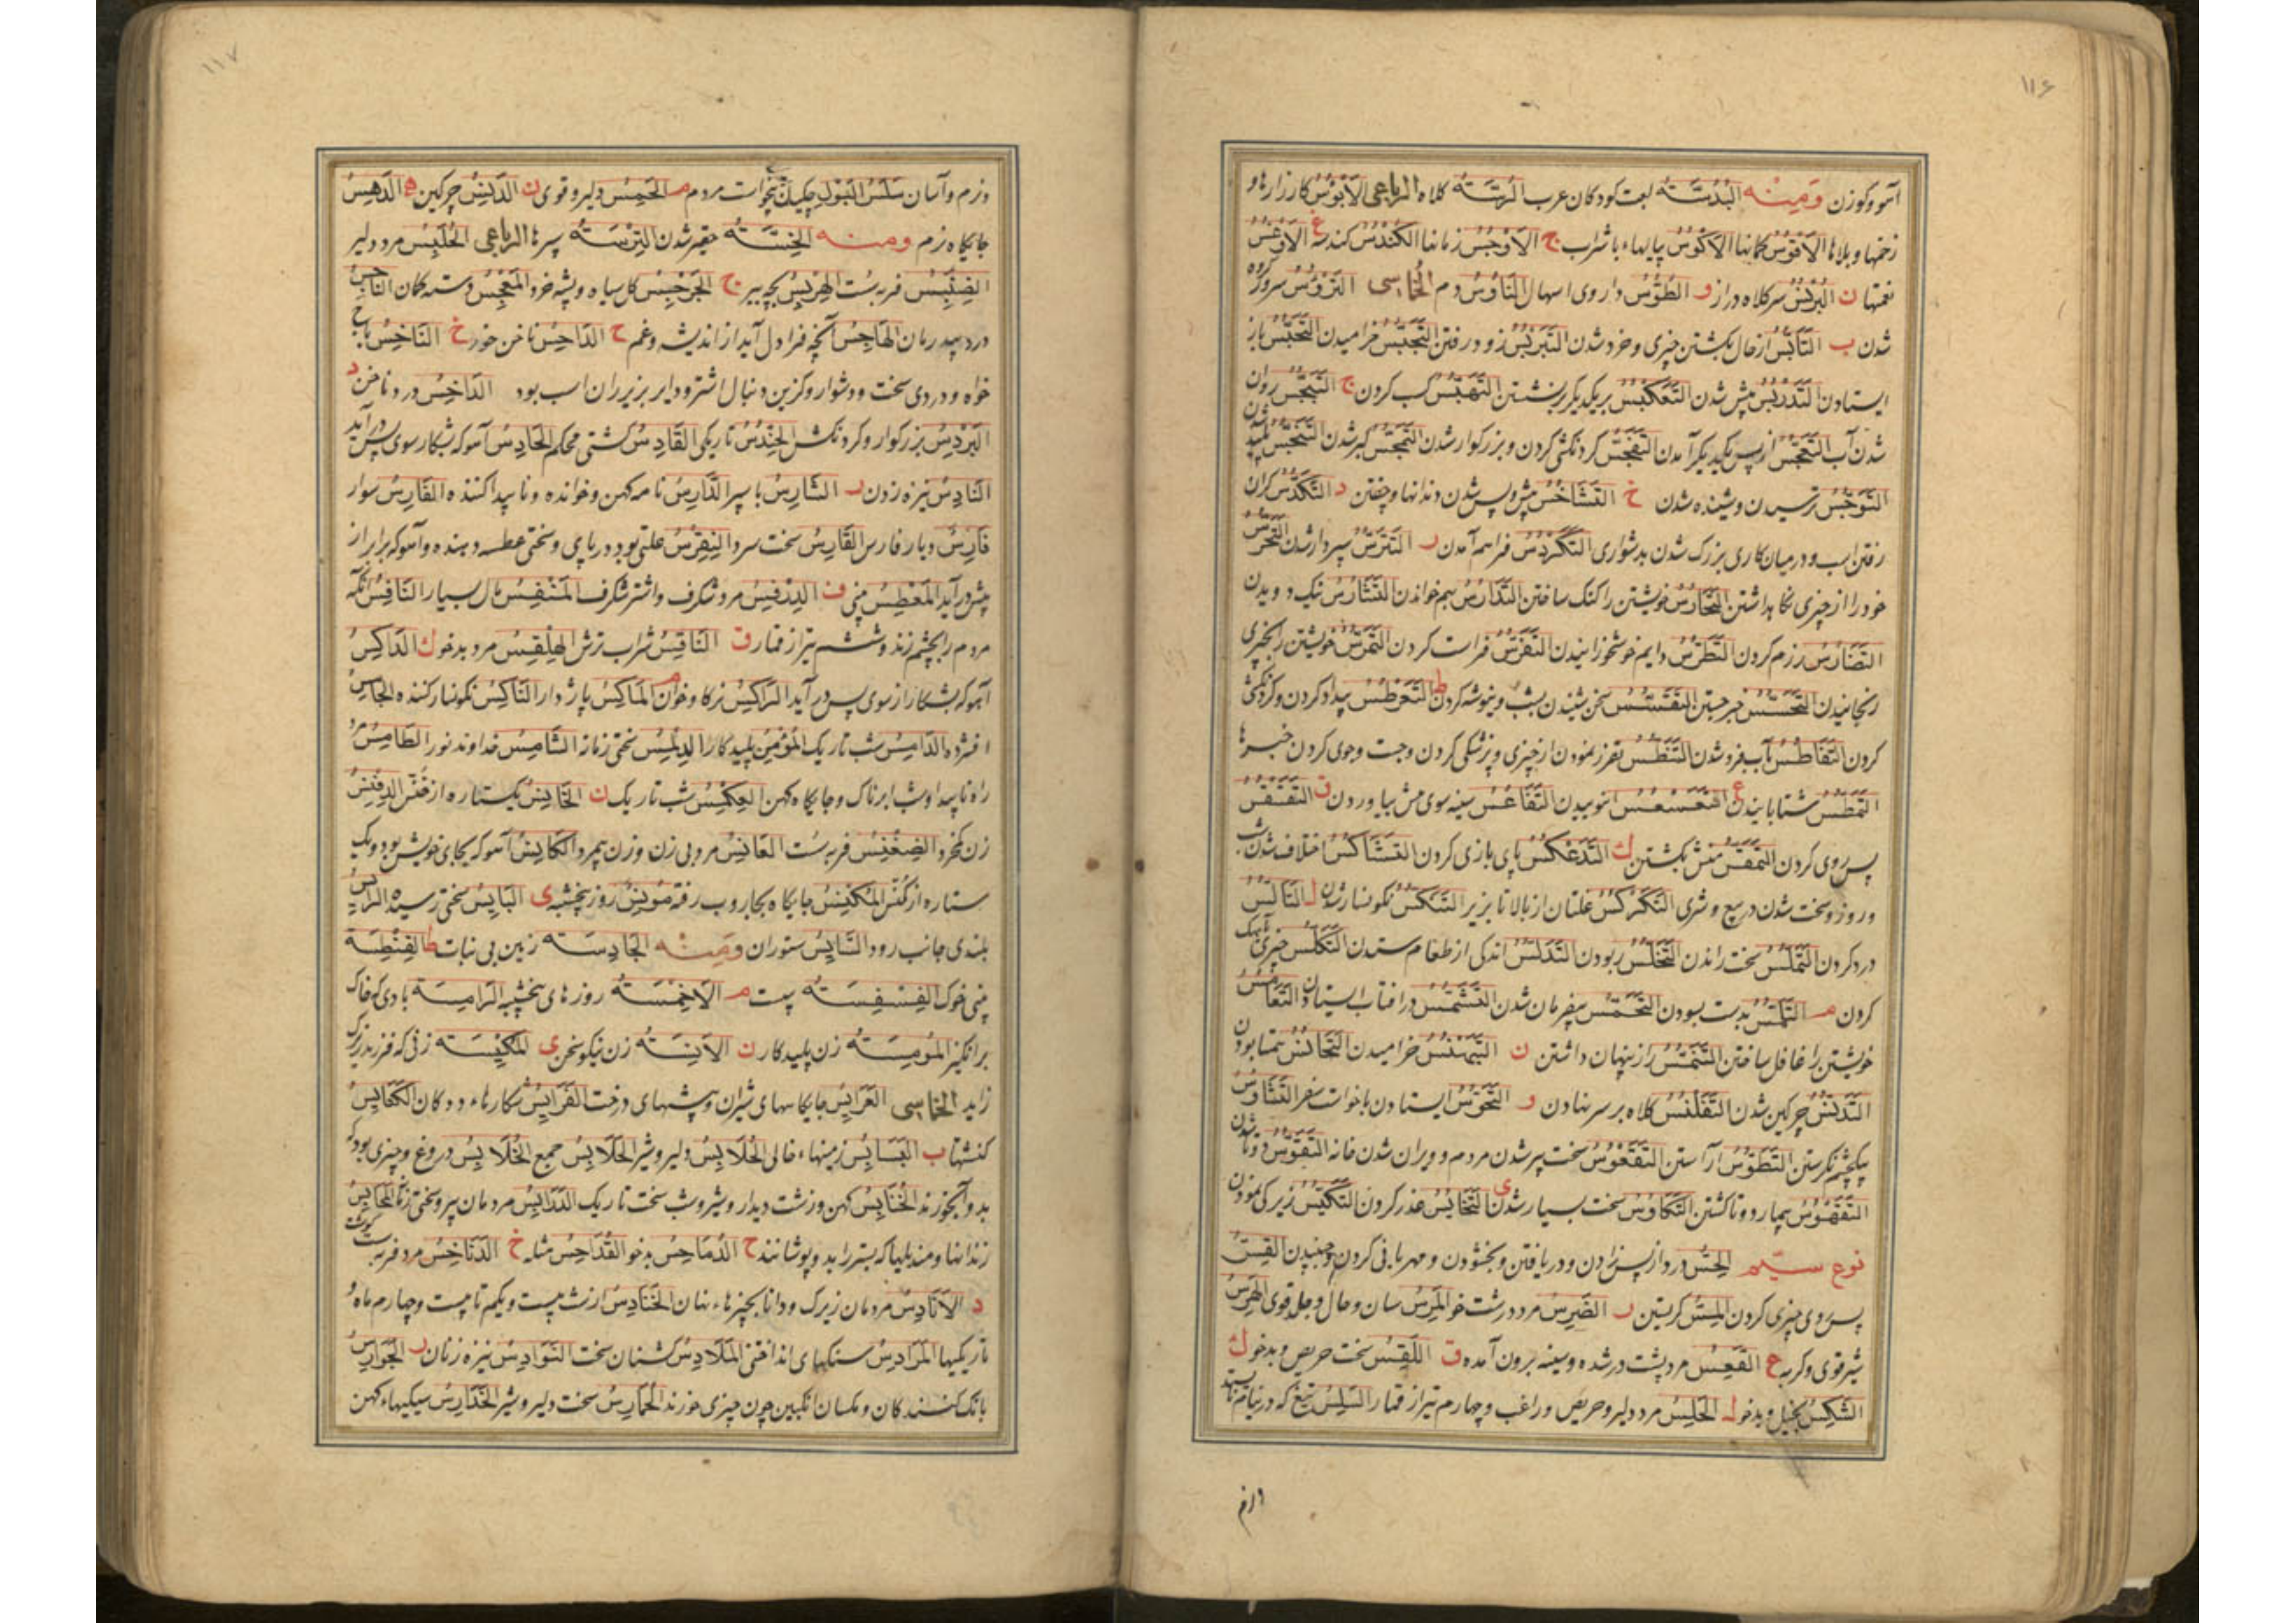 ۱۱۶
آهو و گوزن وَمِنْه البُدُسَّة لعبت کودکان عرب البُرْنُسَة کلاه الرباعی الاَبْؤُسُ کارزارها و
زخمها و بلاها الاَقْوُسُ کمانها الاَکْؤُسُ پیالهاء با شراب ج الاَوْجُسُ زمانها الکُنْدُسُ کندسه غ
نعمتها ن البُرْنُسُ سرکلاه دراز و الطُّؤُسُ داروی اسهال النَّاوُسُ دم الخُماسی التَرَؤُّسُ سر گروه
شدن ب التَّأَبُّسُ از حال بگشتن چیزی و خرد شدن زود رفتن التَّجَبُّسُ خرامیدن التَّحَبُّسُ باز
ایستادن التَّدَرْبُسُ پیش شدن بر یکدیگر بر نشستن کسب کردن ج التَّبَجُّسُ روان
شدن آب التَّعَجُّسُ از پس یکدیگر آمدن التَّفَجُّسُ گردنکشی کردن و بزرگوار شدن التَّمَجُّسُ گبر شدن التَّنَجُّسُ پلید
التَّوَجُّسُ ترسیدن و شنیده شدن خ التَّشَاخُسُ پیش و پس شدن دندانها و خفتن د التَّکَدُّسُ گران
رفتن اسب و در میان کاری بزرگ شدن بدشواری التَّکَرْدُسُ فراهم آمدن ر التَّتَرُّسُ سپردار شدن التَّحَرُّسُ
خود را از چیزی نگاهداشتن التَّخَارُسُ خویشتن را گنگ ساختن التَّدَارُسُ بهم خواندن نیک دویدن
رزم کردن دایم خوش خورانیدن التَّفَرُّسُ فراست کردن التَّمَرُّسُ خویشتن را بچیزی
رنجانیدن التَّحَسُّسُ خبر جستن التَّقَسُّسُ سخن شنیدن بشب و نیوشه کردن ط التَّغَطْرُسُ بیداد کردن و گردنکشی
کردن التَّغَاطُسُ بآب فرو شدن التَّنَطُّسُ تقزز نمودن از چیزی و پزشکی کردن و جست و جوی کردن خبرها
ع بوییدن التَّقَاعُسُ سینه سوی پیش بیاوردن ق
پس روی کردن التَّمَقُّسُ منش بگشتن ك التَّدَعْکُسُ پای بازی کردن التَّشَاکُسُ اختلاف شدن شب
و روز و سخت شدن در بیع و شری التَّکَرْکُسُ غلتان از بالا تا بزیر التَّنَکُّسُ نگونسار شدن ل
درد کردن التَّمَلُّسُ سخت راندن التَّخَلُّسُ ربودن التَّدَلُّسُ اندکی از طعام ستدن التَّکَلُّسُ چیزی بآهک
کردن م التَّلَمُّسُ بدست بسودن التَّحَمُّسُ بیفرمان شدن التَّشَمُّسُ در آفتاب ایستادن التَّغَامُسُ
خویشتن را غافل ساختن التَّنَمُّسُ راز پنهان داشتن ن التَّبَهْنُسُ خرامیدن التَّجَانُسُ همتا بودن
التَّدَنُّسُ چرکین شدن التَّقَلْنُسُ کلاه بر سر نهادن و التَّحَوُّسُ ایستادن باخواست سفر التَّشَاوُسُ
بیکچشم نگرستن التَّطَوُّسُ آراستن التَّقَعْوُسُ سخت پیر شدن مردم و ویران شدن خانه التَّقَوُّسُ دوتا شدن
بیمار دوتا گشتن التَّکَاوُسُ سخت بسیار شدن ی التَّخَایُسُ غدر کردن التَّکَیُّسُ زیرکی نمودن
نوع سیّم الحِسُّ درد از پس زادن و دریافتن و بخشودن و مهربانی کردن و جنبیدن القِسُّ
پس روی چیزی کردن المَسُّ گریستن ر الضَّرِسُ مرد درشت خو المَرِسُ سان و حال و جلد قوی الهَرِسُ
شیر قوی و گربه ع القَعِسُ مرد پشت در شده و سینه برون آمده ق اللَّقِسُ سخت حریص و بدخو ك
الشَّکِسُ بخیل و بدخو ل الحَلِسُ مرد دلیر و حریص و راغب و چهارم تیر از قمار السَّلِسُ تیغ که در نیام
و نرم
۱۱۷
و نرم و آسان سَلَسُ البَوْل چکیدن بیخواست مردم م الحَمِسُ دلیر و قوی ن الدَّنِسُ چرکین ه الدَّهِسُ
جایگاه نرم ومنه الخِسَّة حقیر شدن التِّرَسَة سپرها الرباعی الحُلَبِسُ مرد دلیر
الضِّنْبِسُ فربه سست الهِرْبِسُ بچه ببر ج الجِرْجِسُ گل سیاه و پشه خرد المَعْجِسُ دسته کمان النَّاجِسُ
درد بیدرمان الهَاجِسُ آنچه فرا دل آید از اندیشه و غم ح الدَّاحِسُ ناخن خوره خ النَّاخِسُ باخ
خواه و دردی سخت و دشوار و گزین دنبال اشتر و دایر بزیر ران اسب بود الدَّاخِسُ درد ناخن د
البَرْدِسُ بزرگوار و گردنکش الحِنْدِسُ تاریکی القَادِسُ کشتی محکم الحَادِسُ آهو که شکار سوی پس درآید
النَّادِسُ نیزه زدن ر الشَّارِسُ با سپر الدَّارِسُ نامه کهن و خوانده و ناپیدا کننده الفَارِسُ سوار
فَارِسُ دیار فارس القَارِسُ سخت سرد النِّقْرِسُ علتی بود در پای و سختی عطسه دهنده و آهو که برابر از
پیش درآید المَعْطِسُ بینی ف الدِّرْفِسُ مرد شگرف و اشتر شگرف المُنْفِسُ مال بسیار النَّافِسُ آنکه
مردم را بچشم زند و ششم تیر از قمار ق النَّاقِسُ شراب ترش الهِلْقِسُ مرد بدخو ك الدَّاکِسُ
آهو که شکار از سوی پس درآید الرَّاکِسُ نر گاو خرمن المَاکِسُ باژدار النَّاکِسُ نگونسار کننده م الجَامِسُ
افسرده الدَّامِسُ شب تاریک المُوْمِسُ پلیدکار الدِّلْمِسُ سختی زمانه الشَّامِسُ خداوند نور الطَّامِسُ
راه ناپیدا و شب ابرناک و جایگاه کهن العِکْمِسُ شب تاریک ن الخَانِسُ یک ستاره از خُنَّس الدِّفْنِسُ
زن کم خرد فربه سست العَانِسُ مرد بی زن و زن بیمرد الکَانِسُ آهو که بجای خویش بود و یک
ستاره از کُنَّس المُکْنِسُ جایگاه بجاروب رفته مُوْنِسُ روز پنجشنبه ی البَایِسُ سختی رسیده الرَّایِسُ
بلندی جانب رود السَّایِسُ ستوران وَمِنْه الجَادِسَة زمین بی نبات ط الفِنْطِسَة
بینی خوک الفِسْفِسَة سپست م الاَخْمِسَة روزهای پنجشنبه الرَّامِسَة بادی که خاک
برانگیزد المُوْمِسَة زن پلیدکار ن الآنِسَة زن نیکو سخن ی المُکْیِسَة زنی که فرزند زیرک
زاید الخماسی العَرَایِسُ جایگاههای شیران و بیشهای درخت الفَرَایِسُ شکارهاء ددگان الکَنَایِسُ
کنشتها ب البَسَابِسُ زمینهاء خالی الحُلَابِسُ دلیر و شیر الحَلَابِسُ جمع الخُلَابِسُ دروغ و چیزی بود که
بدو آنچه زند الخُنَابِسُ کهن و زشت دیدار و شیر و شب سخت تاریک الدَّرَابِسُ مردمان پیر و سختی زمانه المَحَابِسُ
زندانها و مندیلها که بستر را بدو پوشانند ح الدُّمَاحِسُ بدخو القُدَاحِسُ مثله خ الدُّنَاخِسُ مرد فربه پر گوشت
د الاَنَادِسُ مردمان زیرک و دانا بچیزهاء نهان الحَنَادِسُ از شب بیست و یکم تا بیست و چهارم ماه و
تاریکیها المَرَادِسُ سنگهای انداختنی المَلَادِسُ گشنان سخت النَّوَادِسُ نیزه زنان ر الجَوَارِسُ
بانگ کنندگان و مگسان انگبین چون چیزی خورند الحُمَارِسُ سخت دلیر و شیر الخَنْدَارِسُ سیکیهاء کهن